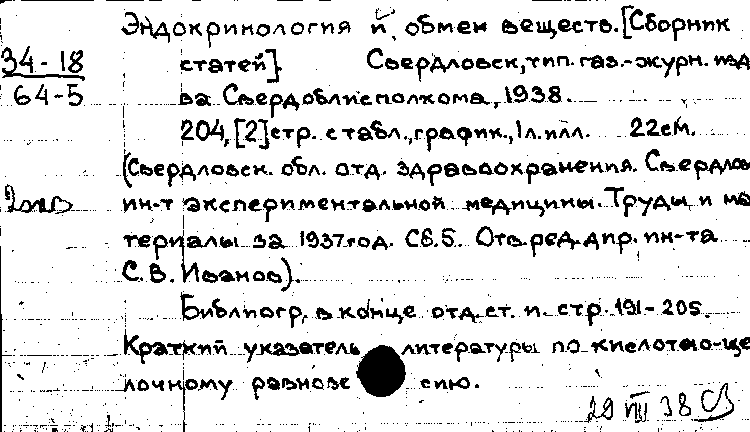 Эндокринология и обмен веществ. [Сборник
34-18
статей]. Свердловск, тип. газ.-журн. изд-
64-5
ва Свердоблисполкома, 1938.
204, [2] стр. с табл., график., 1 л. илл. 22 см.
(Свердловск. обл. отд. здравоохранения. Свердлов
ин-т экспериментальной медицины. Труды и ма
териалы за 1937 год. Сб. 5. Отв. ред. дир. ин-та
С. В. Иванов).
Библиогр. в конце отд. ст. и стр. 191-205.
Краткий указатель литературы по кислотно-ще
лочному равнове сию.
29 VIII 38